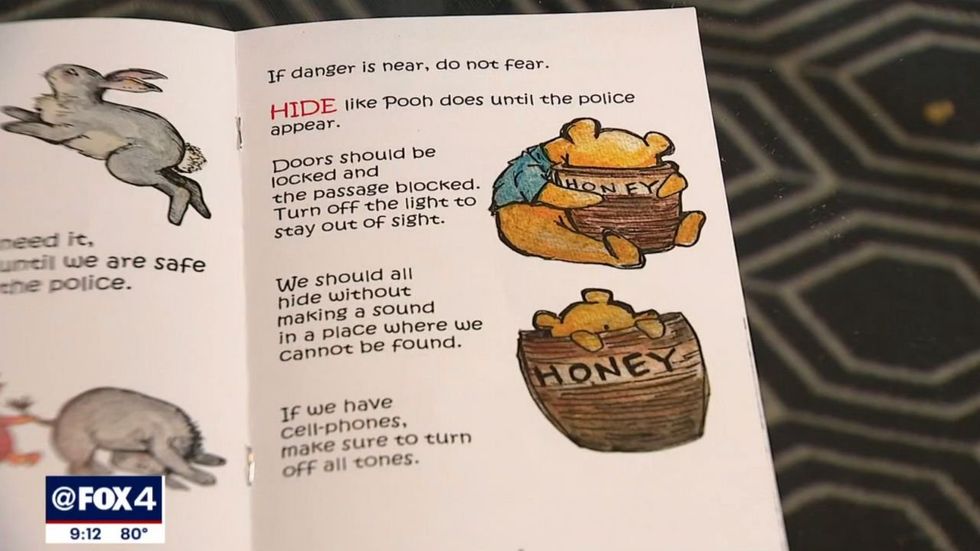 need it,
until we are safe
the police.
If danger is near, do not fear.
HIDE like Pooh does until the police
appear.
Doors should be
locked and
the passage blocked.
Turn off the light to
stay out of sight.
We should all
hide without
making a sound
in a place where we
cannot be found.
If we have
cell-phones,
make sure to turn
off all tones.
HONEY
HONEY
@FOX 4
9:12 80°